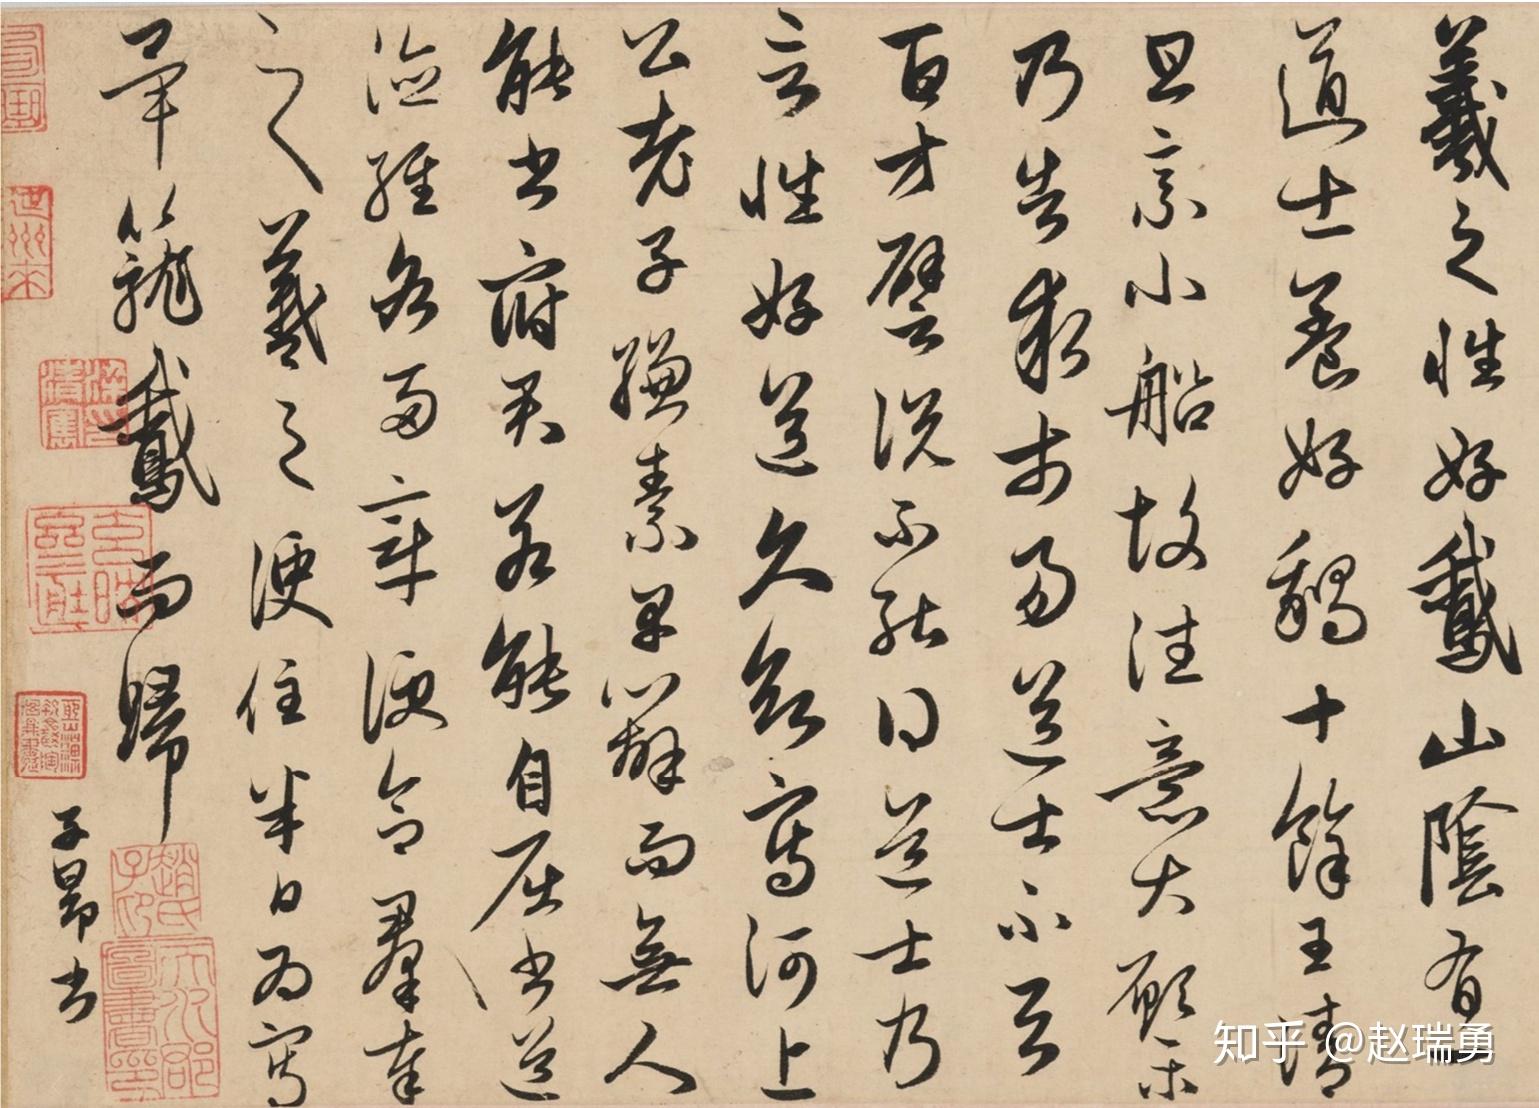 羲之性好鵞山陰有一
道士養好鵝十餘王清
旦乘小船故往意大願樂
乃告求市易道士不与
百方譬說不能得道士乃
言性好道久欲寫河上
公老子縑素早辦而無人
能書府君若能自屈書道
德經各兩章便合羣奉
之羲之便住半日為寫
畢籠鵞而歸
子昂書
趙氏子昂
天水郡圖書印
知乎 @赵瑞勇